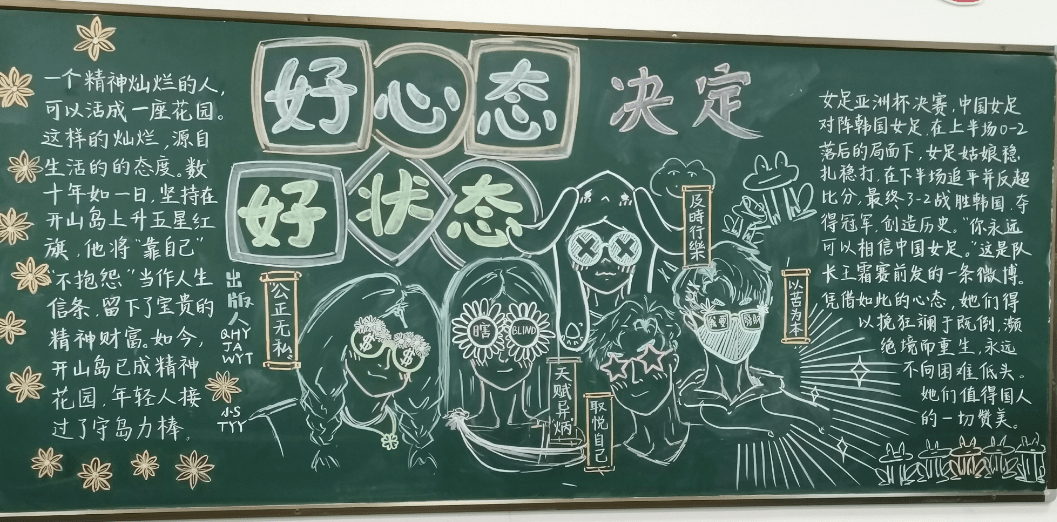 好心态 决定
好状态
一个精神灿烂的人,
可以活成一座花园。
这样的灿烂,源自
生活的的态度。数
十年如一日,坚持在
开山岛上升五星红
旗,他将“靠自己”
“不抱怨”当作人生
信条,留下了宝贵的
精神财富。如今,
开山岛已成精神
花园,年轻人接
过了守岛力棒。
出版人
QHY
JA
WYT
N·S
TYY
公正无私
$ $
瞎 BLIND
天赋异炳
取悦自己
及時行樂
以苦为本
女足亚洲杯决赛,中国女足
对阵韩国女足,在上半场0-2
落后的局面下,女足姑娘稳
扎稳打,在下半场追平并反超
比分,最终3-2战胜韩国,夺
得冠军,创造历史。“你永远
可以相信中国女足。”这是队
长王霜赛前发的一条微博。
凭借如此的心态,她们得
以挽狂澜于既倒,濒
绝境而重生,永远
不向困难低头。
她们值得国人
的一切赞美。